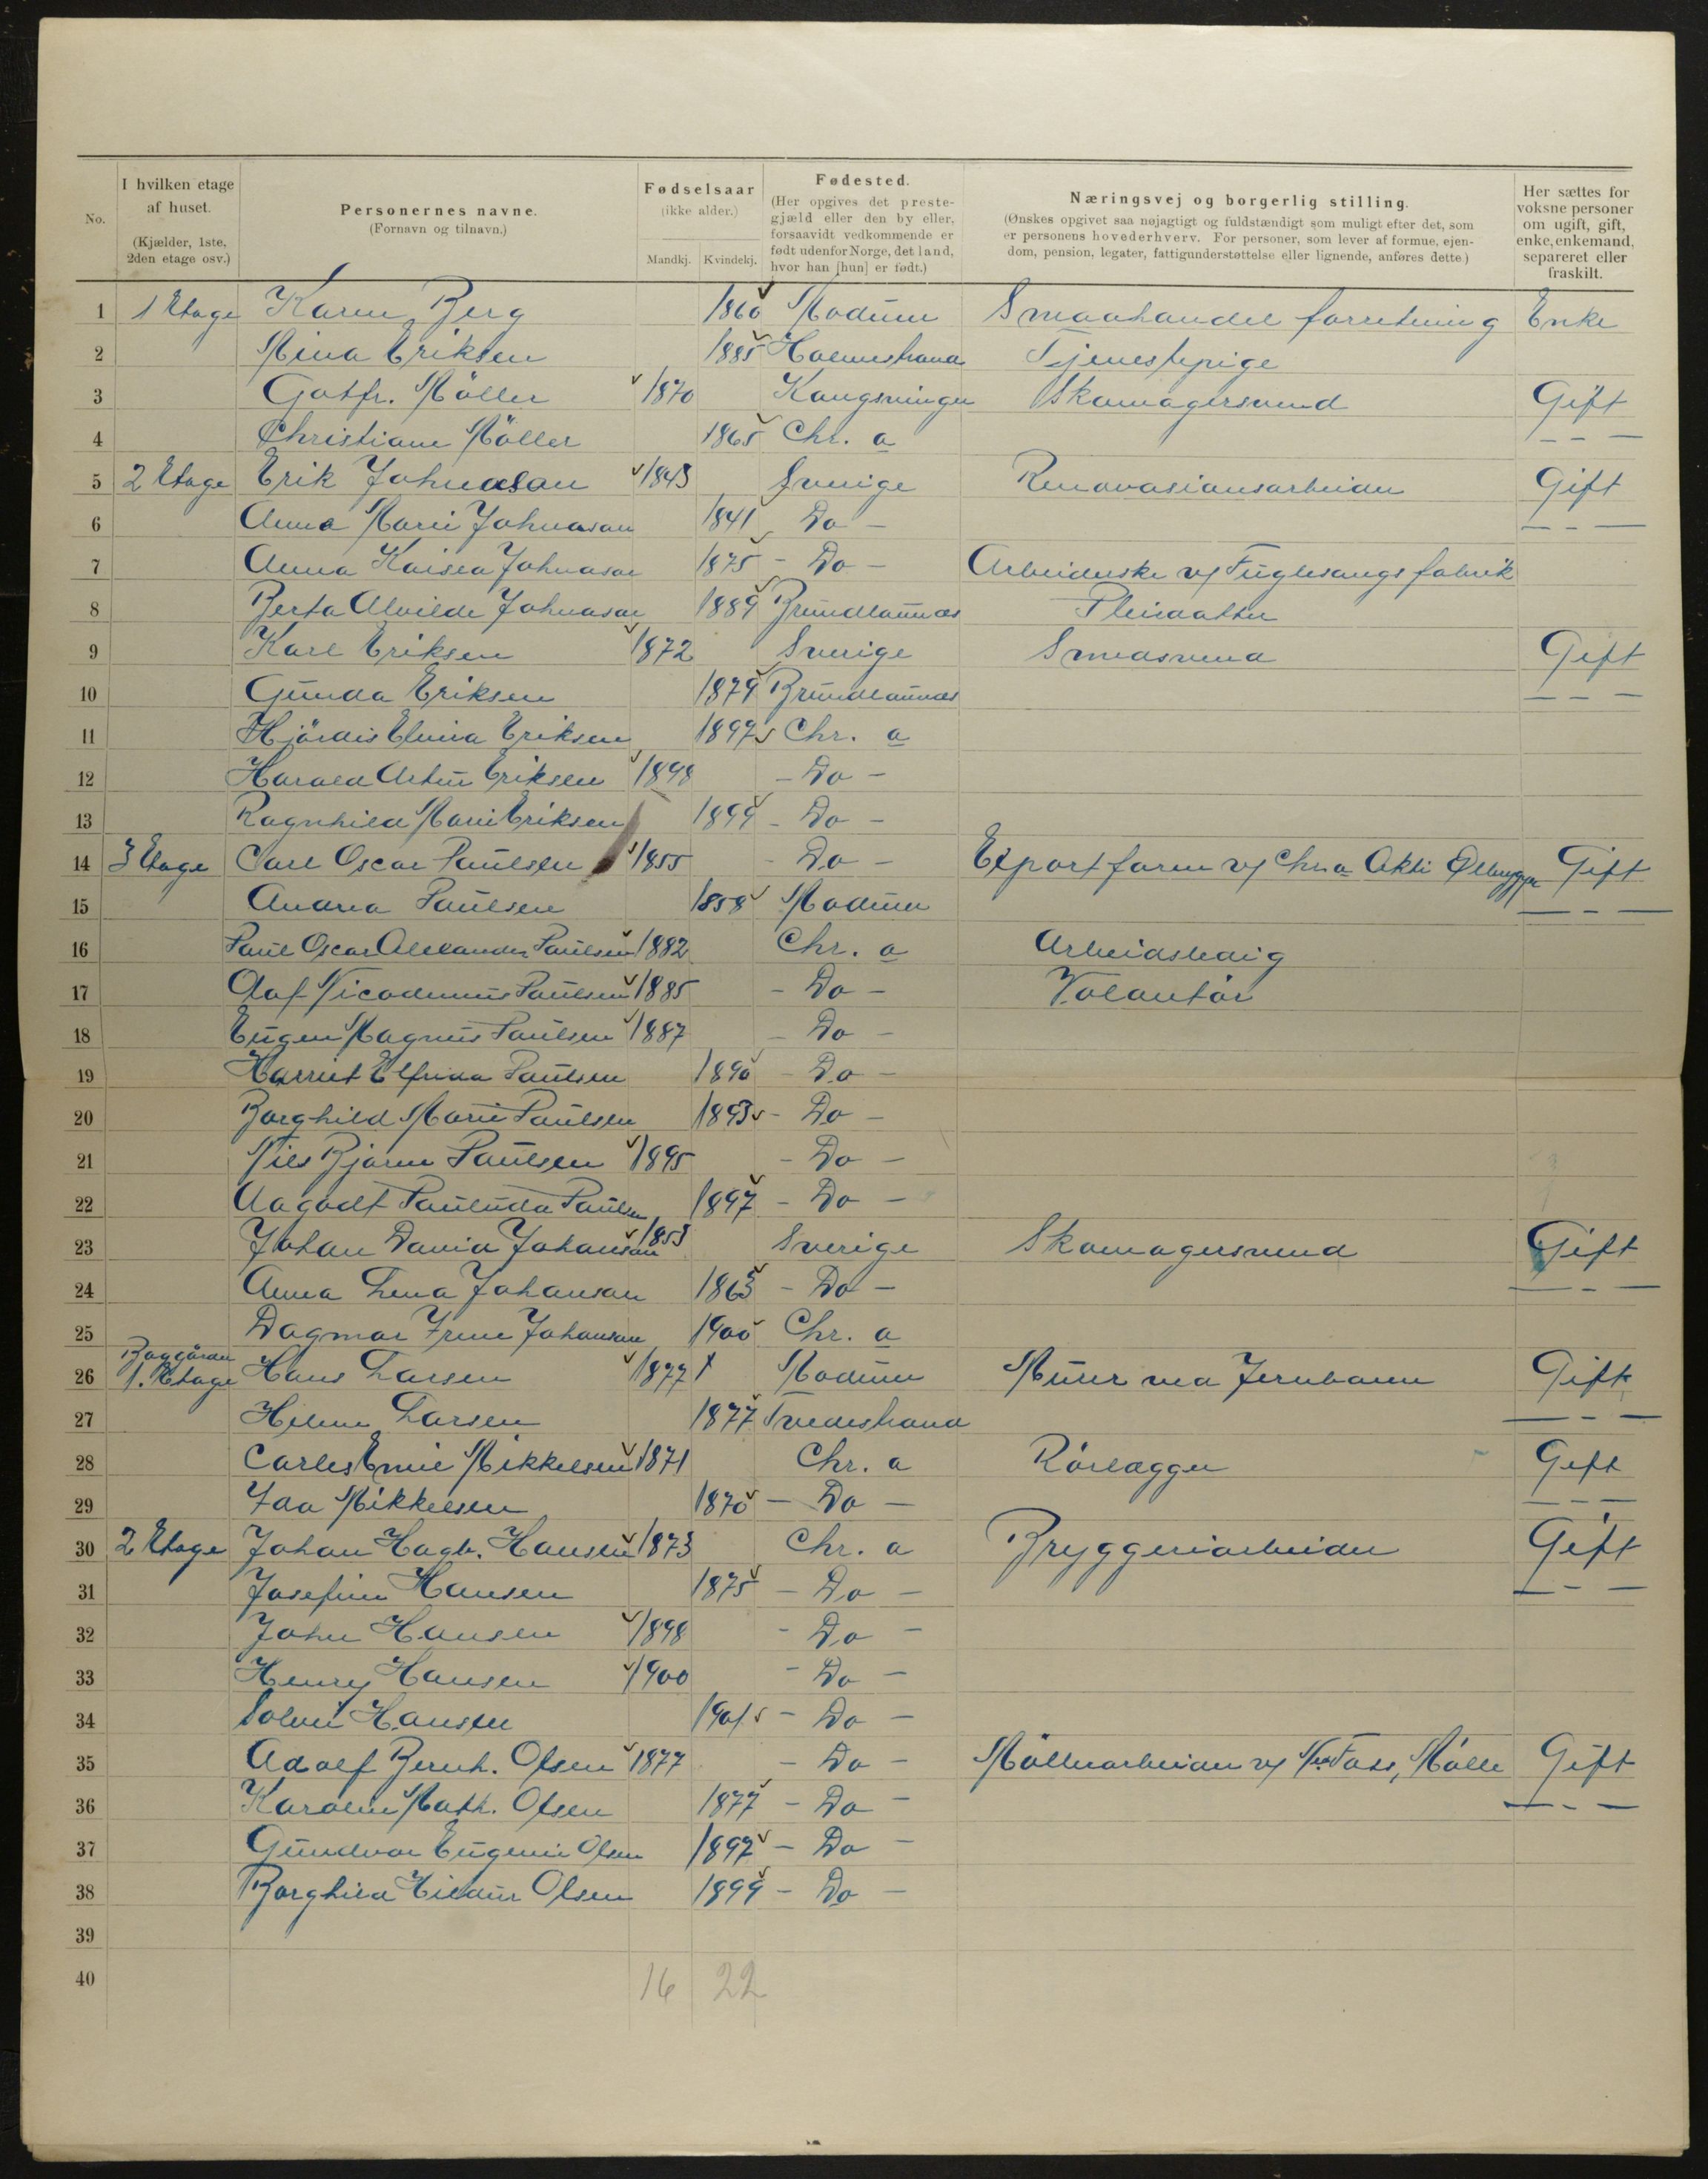 No.
I hvilken etage af huset.
(Kjælder, 1ste, 2den etage osv.)
Personernes navne.
(Fornavn og tilnavn.)
Fødselsaar
(ikke alder.)
Mandkj. Kvindekj.
Fødested.
(Her opgives det prestegjæld eller den by eller, forsaavidt vedkommende er født udenfor Norge, det land, hvor han [hun] er født.)
Næringsvej og borgerlig stilling.
(Ønskes opgivet saa nøjagtigt og fuldstændigt som muligt efter det, som er personens hovederhverv. For personer, som lever af formue, ejendom, pension, legater, fattigunderstøttelse eller lignende, anføres dette.)
Her sættes for voksne personer om ugift, gift, enke, enkemand, separeret eller fraskilt.
1 1 Etage Karen Berg 1860 Modum Smaahandel forretning Enke
2 Mina Eriksen 1885 Holmestrand Tjenestepige
3 Gotfr. Möller 1870 Kongsvinger Skomagersvend Gift
4 Christiane Möller 1865 Chr. a – – –
5 2 Etage Erik Johnasan 1843 Sverige Renovasionsarbeider Gift
6 Anna Marie Johnasan 1841 Do – – – –
7 Anna Kaisea Johnasan 1875 – Do – Arbeiderske v/ Fuglesangs fabrik
8 Berta Alvilde Johnasan 1889 Brundlannæs Pleiedatter
9 Karl Eriksen 1872 Sverige Smedsvend Gift
10 Gunda Eriksen 1879 Brundlannæs – – –
11 Hjördis Elvira Eriksen 1897 Chr. a
12 Harald Artur Eriksen 1898 – Do –
13 Ragnhild Marie Eriksen 1899 – Do –
14 3 Etage Carl Oscar Paulsen 1855 – Do – Export form v/ Chr.a Akti Ølbrygge Gift
15 Andrea Paulsen 1858 Modum – – –
16 Paul Oscar Alexander Paulsen 1882 Chr. a Arbeidsledig
17 Olaf Nicodemus Paulsen 1885 – Do – Volontör
18 Eugen Magnus Paulsen 1887 – Do –
19 Harriet Elfrida Paulsen 1890 – Do –
20 Borghild Marie Paulsen 1893 – Do –
21 Nils Bjarne Paulsen 1895 – Do –
22 Aagodt Pauluda Paulsen 1897 – Do –
23 Johan David Johansan 1853 Sverige Skomagersvend Gift
24 Anna Lena Johansan 1863 – Do – – – –
25 Dagmar Irene Johansan 1900 Chr. a
26 Baggården 1. Etage Hans Larsen 1877 Modum Murer ved Jernbanen Gift
27 Helene Larsen 1877 Tvedestrand – – –
28 Carles Emil Mikkelsen 1871 Chr. a Rörlægger Gift
29 Ida Mikkelsen 1870 – Do – – – –
30 2 Etage Johan Hagb. Hansen 1873 Chr. a Bryggeriarbeider Gift
31 Josefine Hansen 1875 – Do – – – –
32 John Hansen 1898 – Do –
33 Henry Hansen 1900 – Do –
34 Solvei Hansen 1901 – Do –
35 Adolf Bernh. Olsen 1877 – Do – Möllearbeider v/ Foss, Mölle Gift
36 Karoline Math. Olsen 1877 – Do – – – –
37 Gundvor Eugenie Olsen 1897 – Do –
38 Borghild Hildur Olsen 1899 – Do –
39
40 16 22